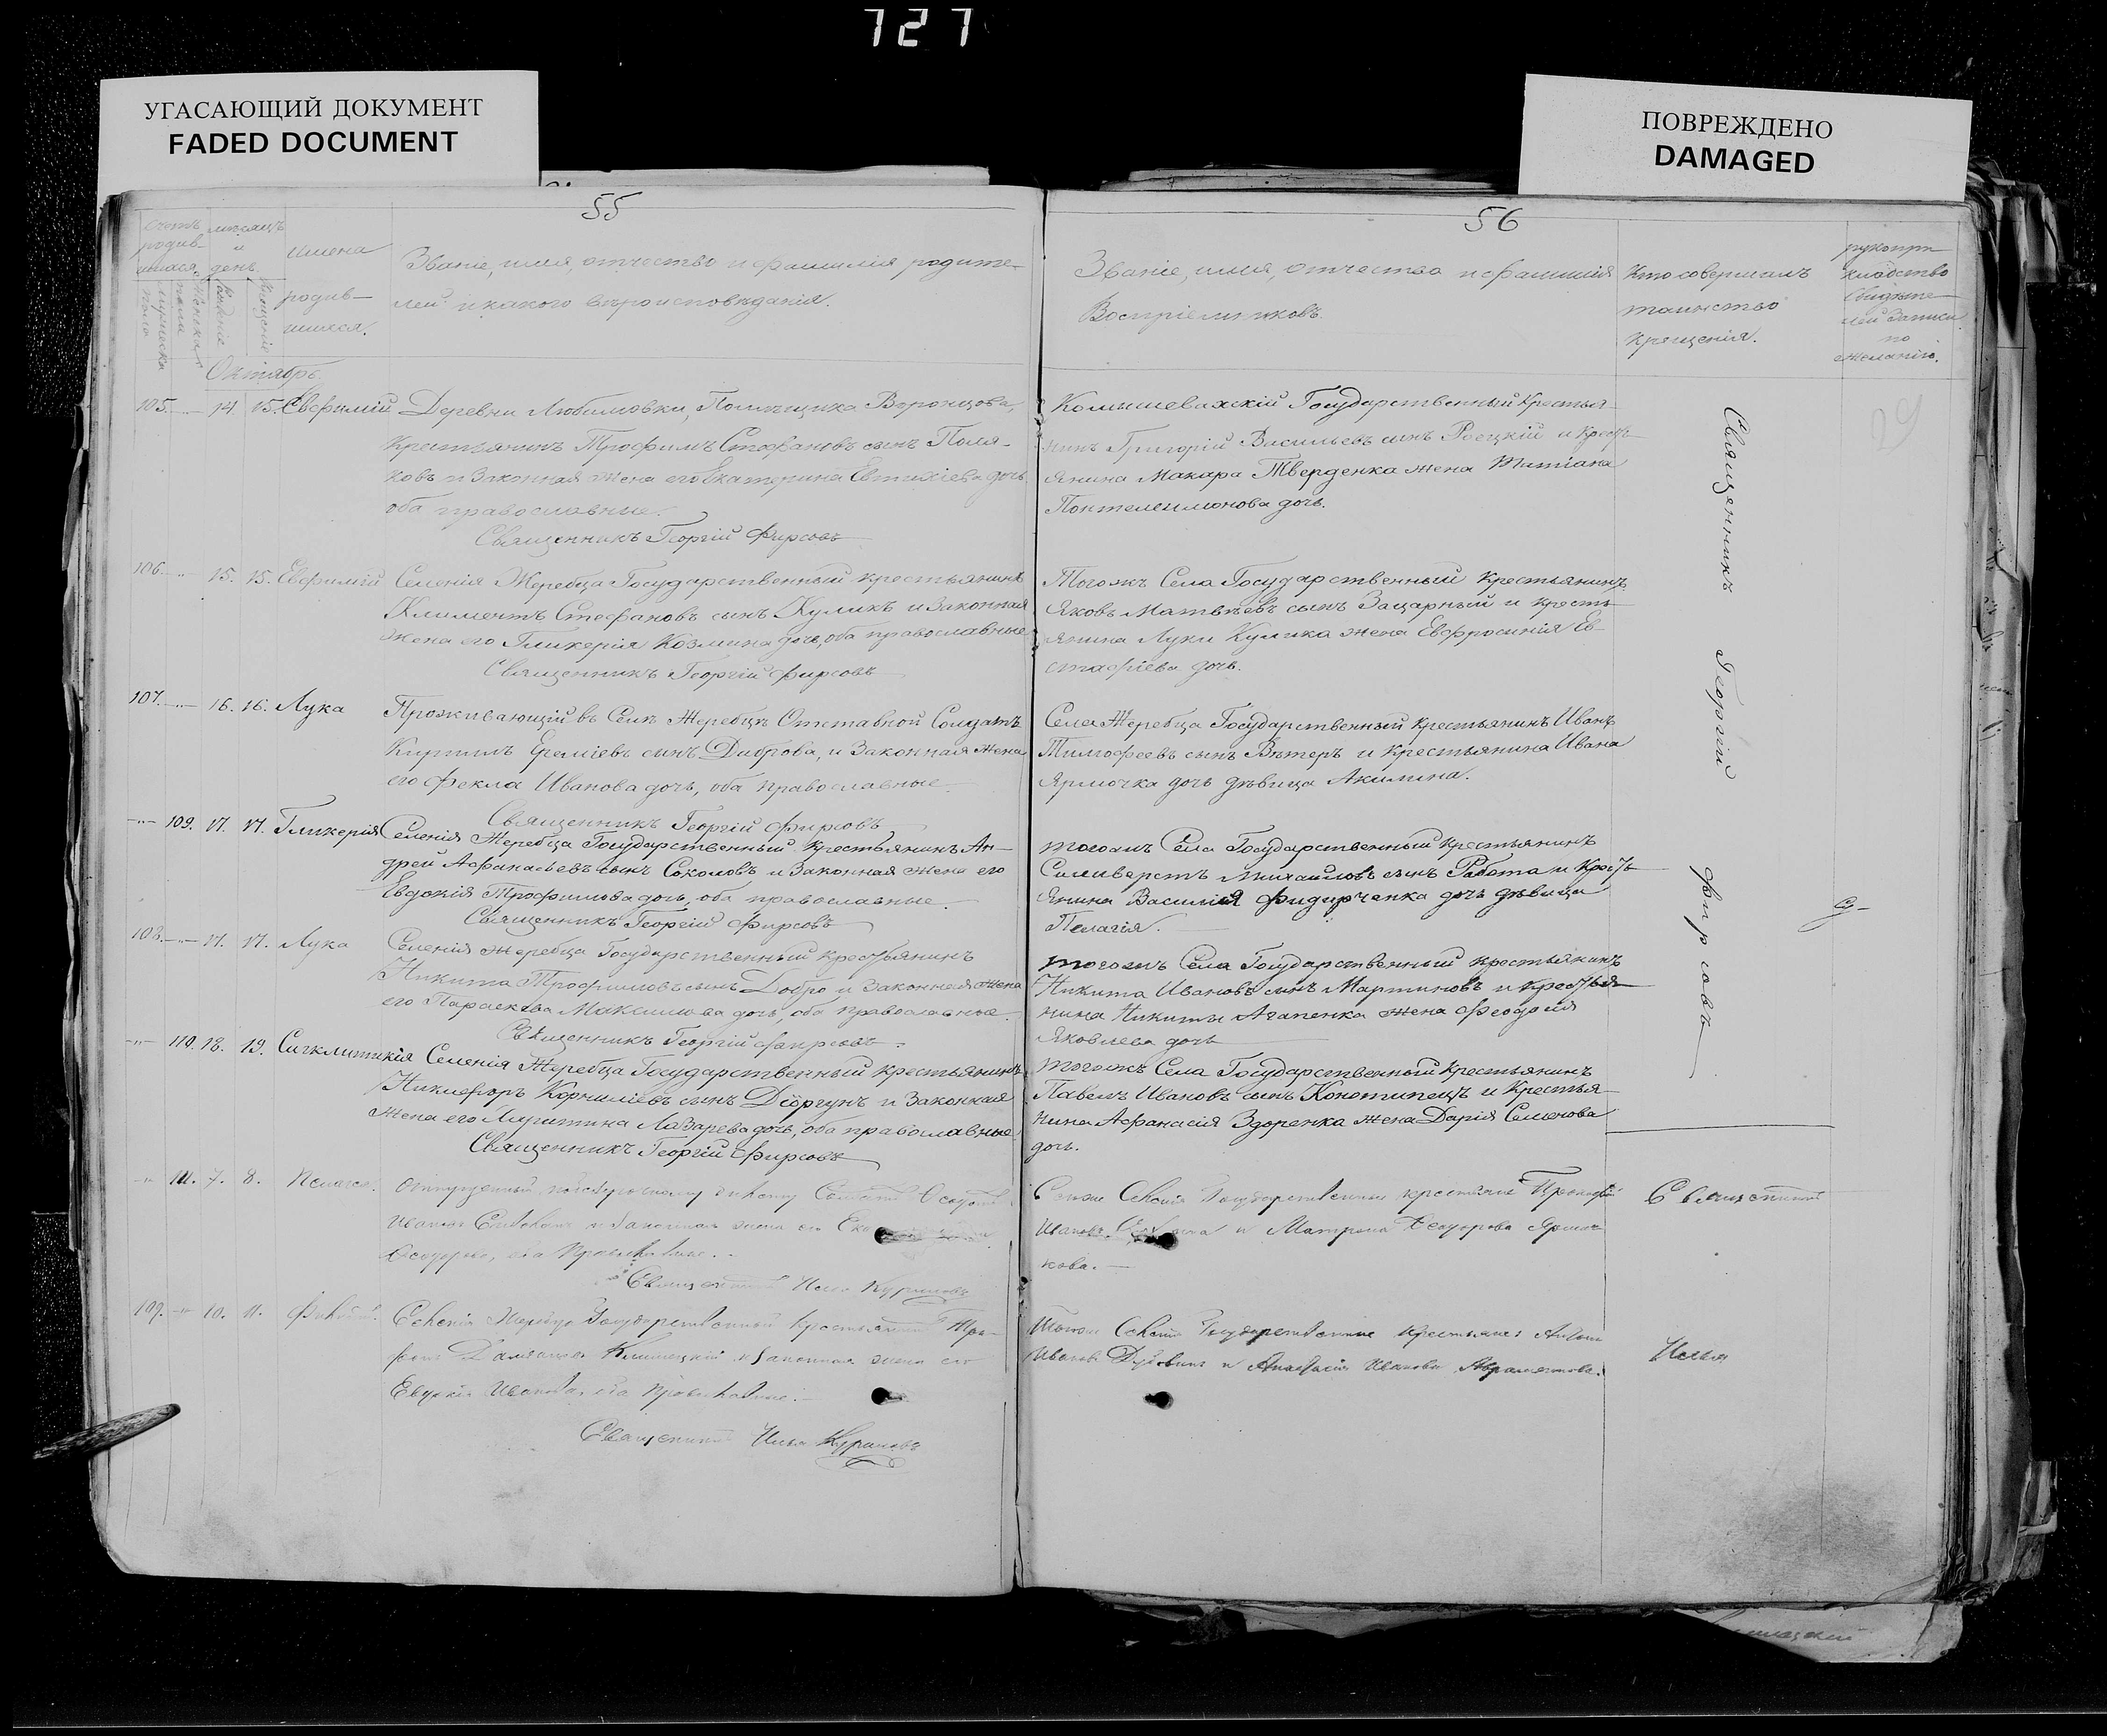 727
УГАСАЮЩИЙ ДОКУМЕНТ
FADED DOCUMENT
ПОВРЕЖДЕНО
DAMAGED
55
Счетъ родив-шихся.
мужеска пола
женска пола
мѣсяцъ и день.
рожденіе
крещеніе
имена
родив-
шихся.
Званіе, имя, отчество и фамилія родите-
лей и какого вѣроисповѣданія.
Октябрь
105. 14 15. Евфимій Деревни Любимовки, Помѣщика Воронцова,
крестьянинъ Трофимъ Стефановъ сынъ Поля-
ковъ и законная жена его Екатерина Евтихіева дочь
оба православные.
Священникъ Георгій Фирсовъ
106. 15. 15. Евфимій Селенія Жеребца Государственный крестьянинъ
Климентъ Стефановъ сынъ Куликъ и законная
жена его Гликерія Козмина дочь, оба православные
Священникъ Георгій Фирсовъ
107. 16. 16. Лука Проживающій въ Селѣ Жеребцѣ Отставной Солдатъ
Кириллъ Ереміевъ сынъ Диброва, и Законная жена
его Фекла Иванова дочь, оба православные
Священникъ Георгій Фирсовъ
109. 17. 17. Гликерія Селенія Жеребца Государственный крестьянинъ Ан-
дрей Афанасьевъ сынъ Соколовъ и Законная жена его
Евдокія Трофимова дочь, оба православные
Священникъ Георгій Фирсовъ
108. 17. 17. Лука Селенія Жеребца Государственный крестьянинъ
Никита Трофимовъ сынъ Добро и Законная жена
его Параскева Максимова дочь, оба православные
Священникъ Георгій Фирсовъ.
110. 18. 19. Сигклитикія Селенія Жеребца Государственный крестьянинъ
Никифоръ Корниліевъ сынъ Діоргунъ и Законная
жена его Харитина Лазарева дочь, оба православные
Священникъ Георгій Фирсовъ
111. 7. 8. Пелагея.
Иванов и законная жена его
оба Православные.
Священникъ Илья Курановъ
109. 10. 11. Селенія Жеребца Государственный крестьянинъ Тро-
и законная жена его
Евдокія Иванова, оба Православные.
Священникъ Илья Курановъ
56
Званіе, имя, отчество и фамилія
Воспріемниковъ.
Кто совершалъ
таинство
крещенія.
рукопри
кладство
свидѣте-
лей записи
по
желанію.
29
Комышевахскій Государственный Крестья-
нинъ Григорій Васильевъ сынъ Роецкій и Крест-
янина Макара Тверденка жена Татіана
Пантелеимонова дочь.
Тогожъ Села Государственный Крестьянинъ
Яковъ Матвѣевъ сынъ Зацарный и крестъ-
янина Луки Кулика жена Евфросинія Ев-
стафіева дочь.
Села Жеребца Государственный Крестьянинъ Иванъ
Тимофеевъ сынъ Вѣтеръ и Крестьянина Ивана
Ярмочка дочь дѣвица Акилина.
тогожъ Села Государственный крестьянинъ
Силиверстъ Михаиловъ сынъ Работа и Кресть-
янина Василія Фидирченка дочь дѣвица
Пелагія.
тогожъ Села Государственный крестьянинъ
Никита Ивановъ сынъ Мартиновъ и Крестья-
нина Никиты Агапенка жена Феодосія
Яковлева дочь
тогожъ Села Государственный Крестьянинъ
Павелъ Ивановъ сынъ Конотипецъ и Крестья-
нина Афанасія Здоренка жена Дарія Семенова
дочь.
Селенія Государственные крестьяне
и Матрона Феодорова Ярмач-
кова.
Тогоже Селенія Государственные Крестьяне
Ивановъ и Анастасія Иванова Авраментова.
Священникъ Георгій Фирсовъ
Священникъ
Илья